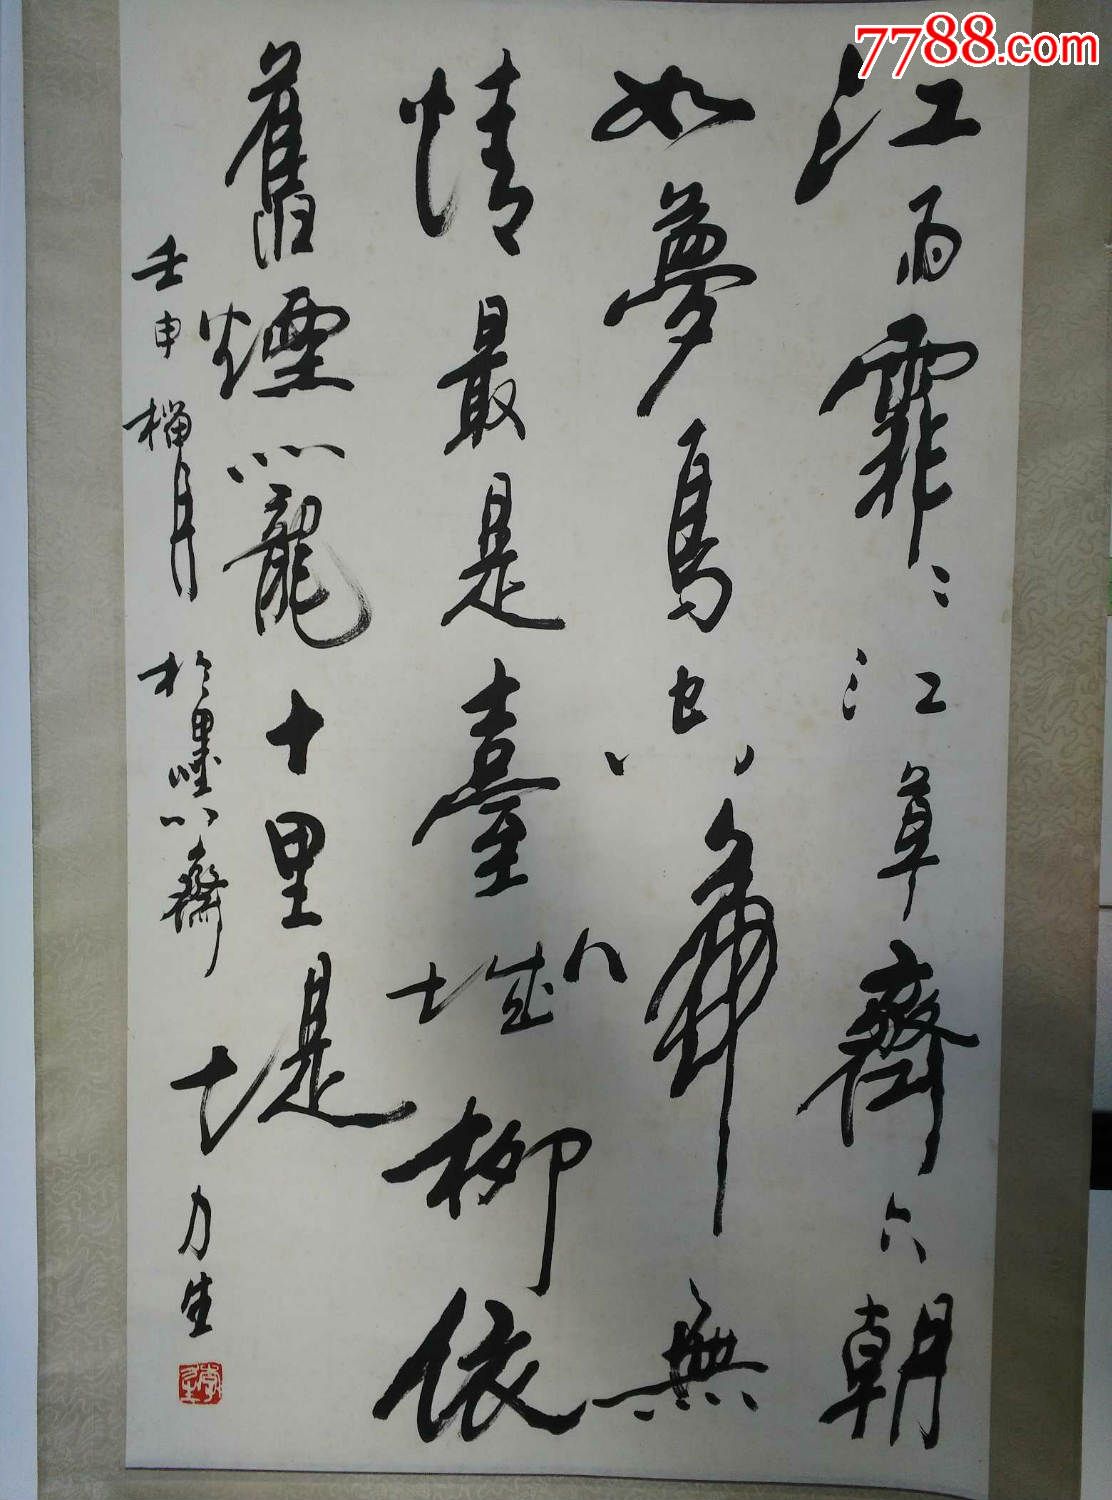 7788.com
江雨霏〻江草齊六朝
如夢鳥空啼無
情最是臺城柳依
舊煙籠十里堤
壬申榴月於齋力生